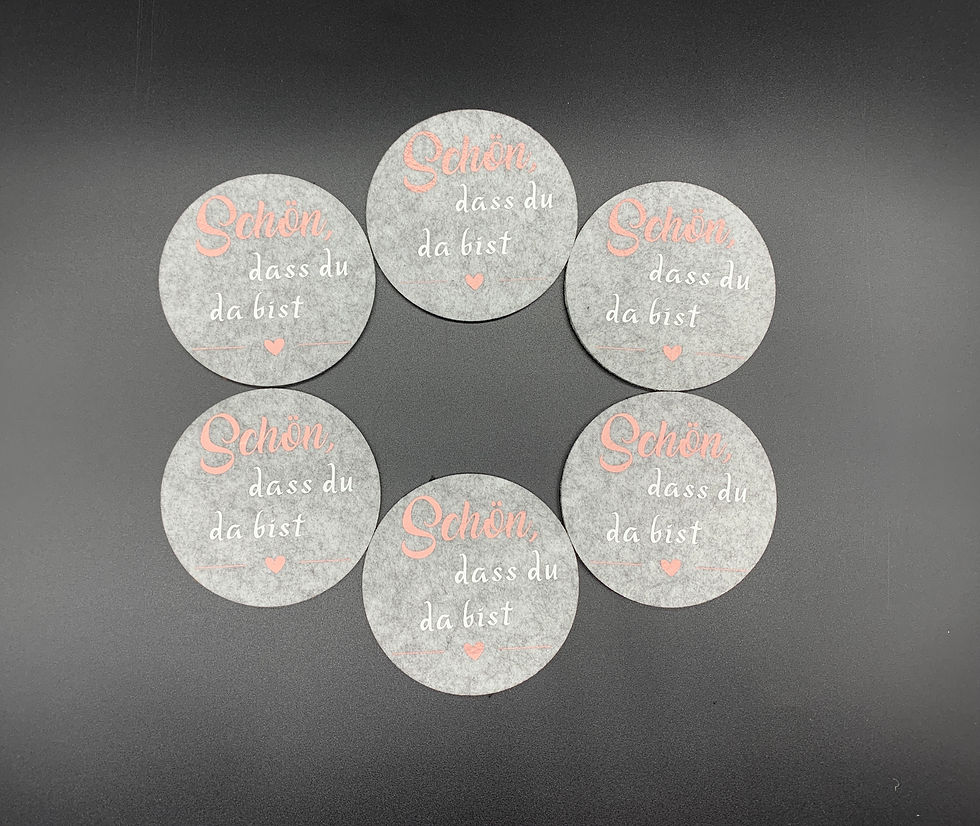 Schön,
dass du
da bist
Schön,
dass du
da bist
Schön,
dass du
da bist
Schön,
dass du
da bist
Schön,
dass du
da bist
Schön,
dass du
da bist